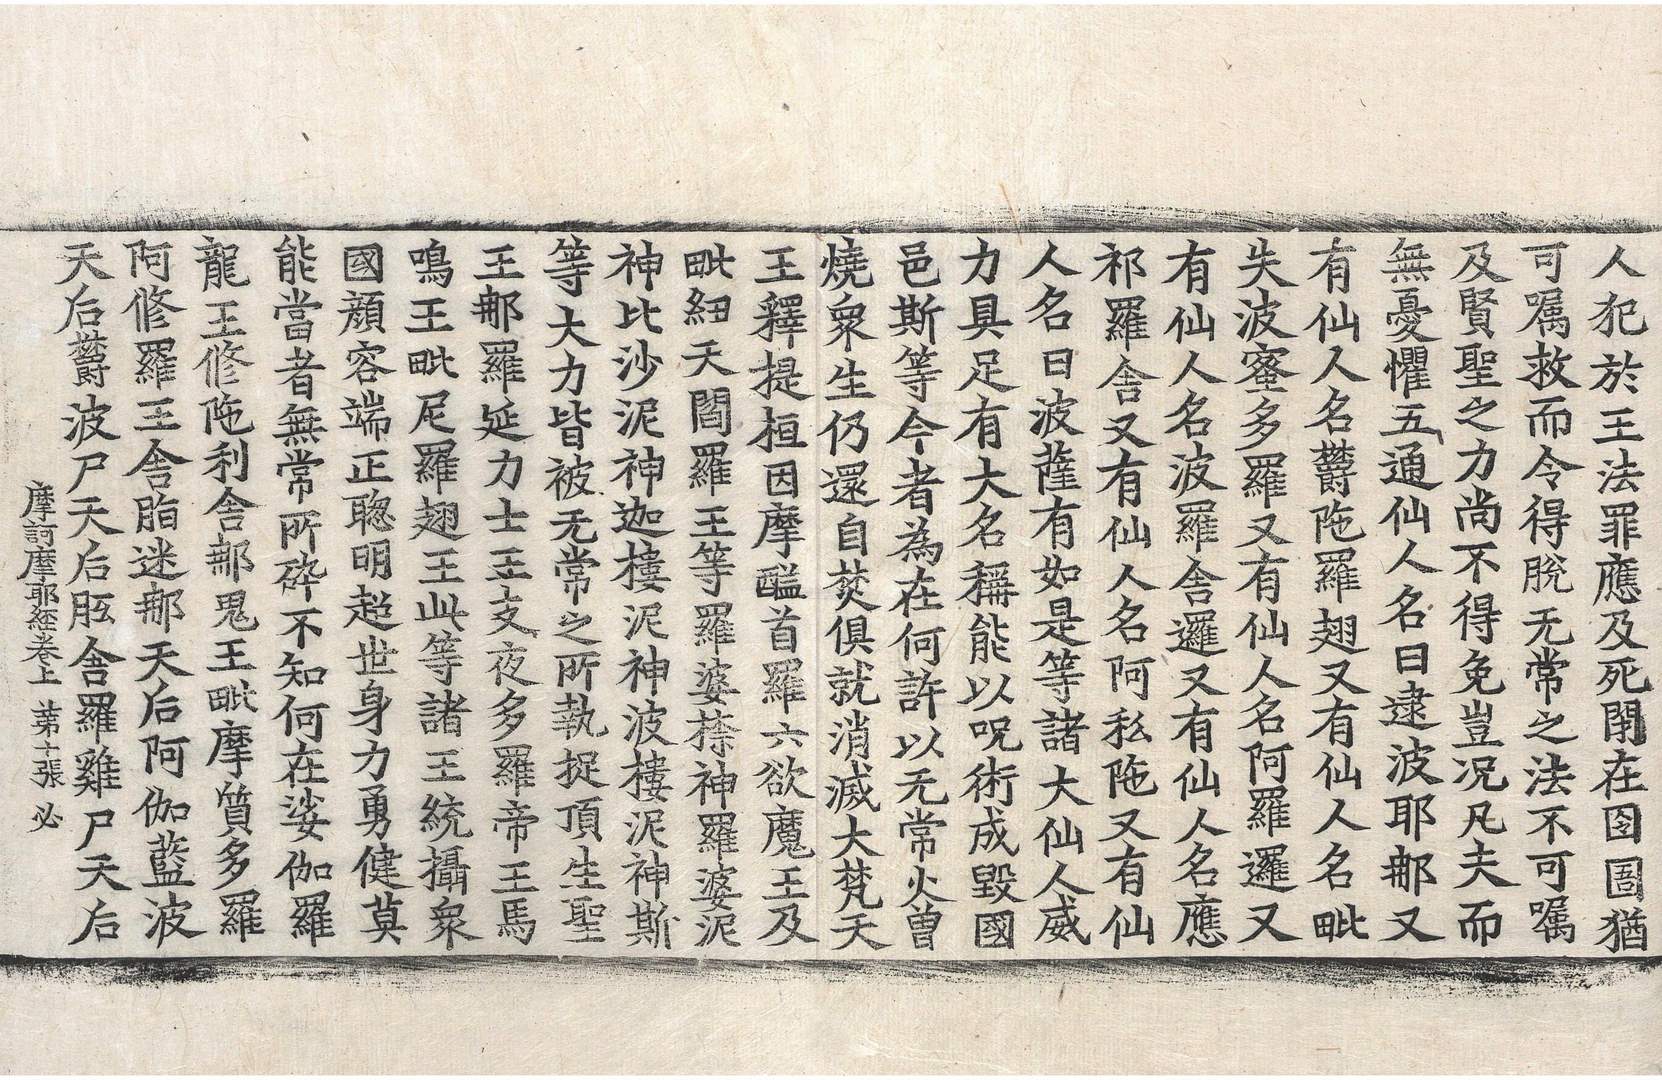 人犯於王法罪應及死閇在囹圄猶
可囑救而令得脫无常之法不可囑
及賢聖之力尚不得免豈况凡夫而
無憂懼五通仙人名曰逮波耶那又
有仙人名欝陁羅翅又有仙人名毗
失波蜜多羅又有仙人名阿羅邏又
有仙人名波羅舍邏又有仙人名應
祁羅舍又有仙人名阿私陁又有仙
人名曰波薩有如是等諸大仙人威
力具足有大名稱能以呪術成毀國
邑斯等今者為在何許以无常火曾
燒衆生仍還自焚俱就消滅大梵天
王釋提桓因摩醯首羅六欲魔王及
毗紐天閻羅王等羅婆㮈神羅婆泥
神比沙泥神迦樓泥神波樓泥神斯
等大力皆被无常之所執捉頂生聖
王那羅延力士王支夜多羅帝王馬
鳴王毗尼羅翅王此等諸王統攝衆
國顔容端正聦明超世身力勇健莫
能當者無常所碎不知何在娑伽羅
龍王修陁利舍那鬼王毗摩質多羅
阿修羅王舍脂迷那天后阿伽藍波
天后欝波尸天后胝舍羅雞尸天后
摩訶摩耶經卷上 第十張 必